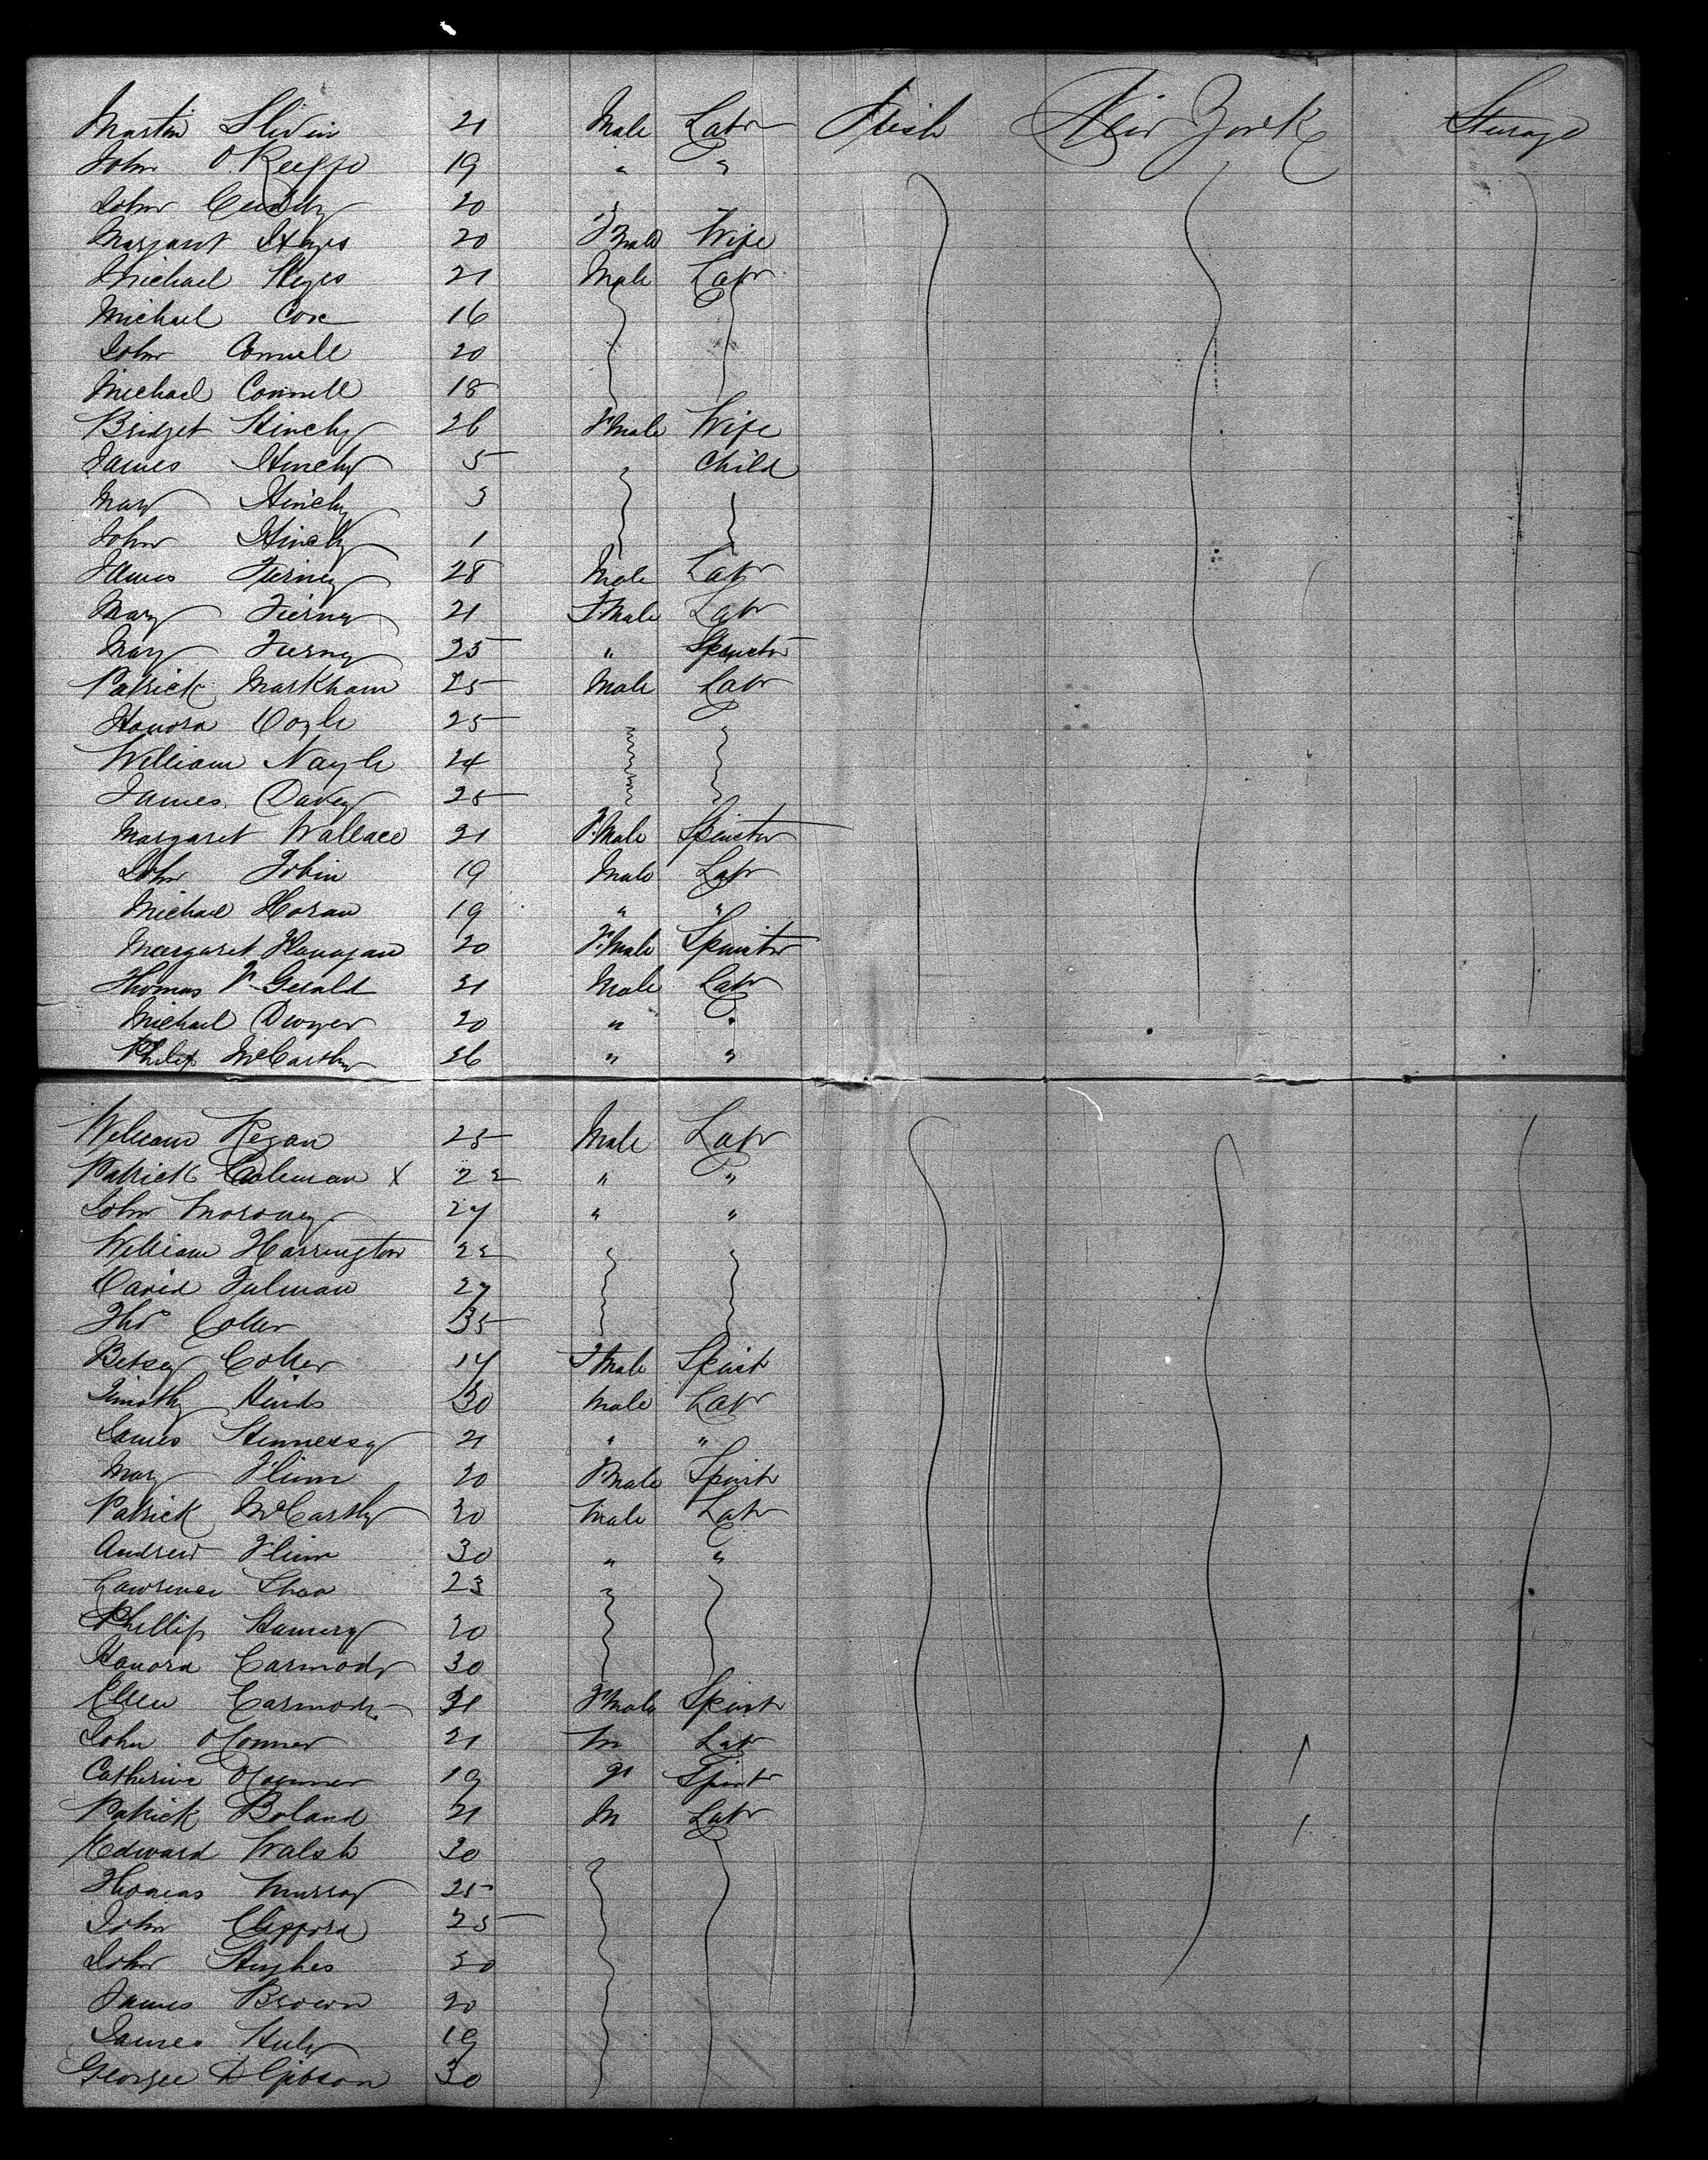 Martin Slevin 21 Male Labr Irish New York Steerage
John O'Keeffe 19 " "
John Cuddy 20
Margaret Hayes 20 F.Male Wife
Michael Hayes 21 Male Labr
Michael Cox 16
John Connell 20
Michael Connell 18
Bridget Hinchy 26 F.Male Wife
James Hinchy 5 Child
Mary Hinchy 3
John Hinchy 1
James Tierney 28 Male Labr
Mary Tierney 21 F.Male Labr
Mary Tierney 25 " Spinster
Patrick Markham 25 Male Labr
Honora Doyle 25
William Nayle 24
James Davey 25
Margaret Wallace 21 F.Male Spinster
John Tobin 19 Male Labr
Michael Horan 19 " "
Margaret Flanagan 20 F.Male Spinster
Thomas F Gerald 21 Male Labr
Michael Dwyer 20 " "
Philip McCarthy 26 " "
William Regan 25 Male Labr
Patrick Coleman X 22 " "
John Moroney 27 " "
William Harrington 22
David 27
Thos Coller 35
Betsey Coller 17 F.Male Spinst
Timothy Hinds 30 Male Labr
James Hennessy 21 " "
Mary Flinn 20 F.Male Spinst
Patrick McCarthy 30 Male Labr
Andrew Flinn 30 " "
Lawrence Shea 23
Phillip 20
Honora Carmody 30
Ellen Carmody 21 F.Male Spinst
John OConner 21 M Labr
Catherine OConner 19 F Spinst
Patrick Boland 21 M Labr
Edward Walsh 20
Thomas Murray 25
John Clifford 25
John Hughes 30
James Brown 20
James Huly 19
George D Gibson 30